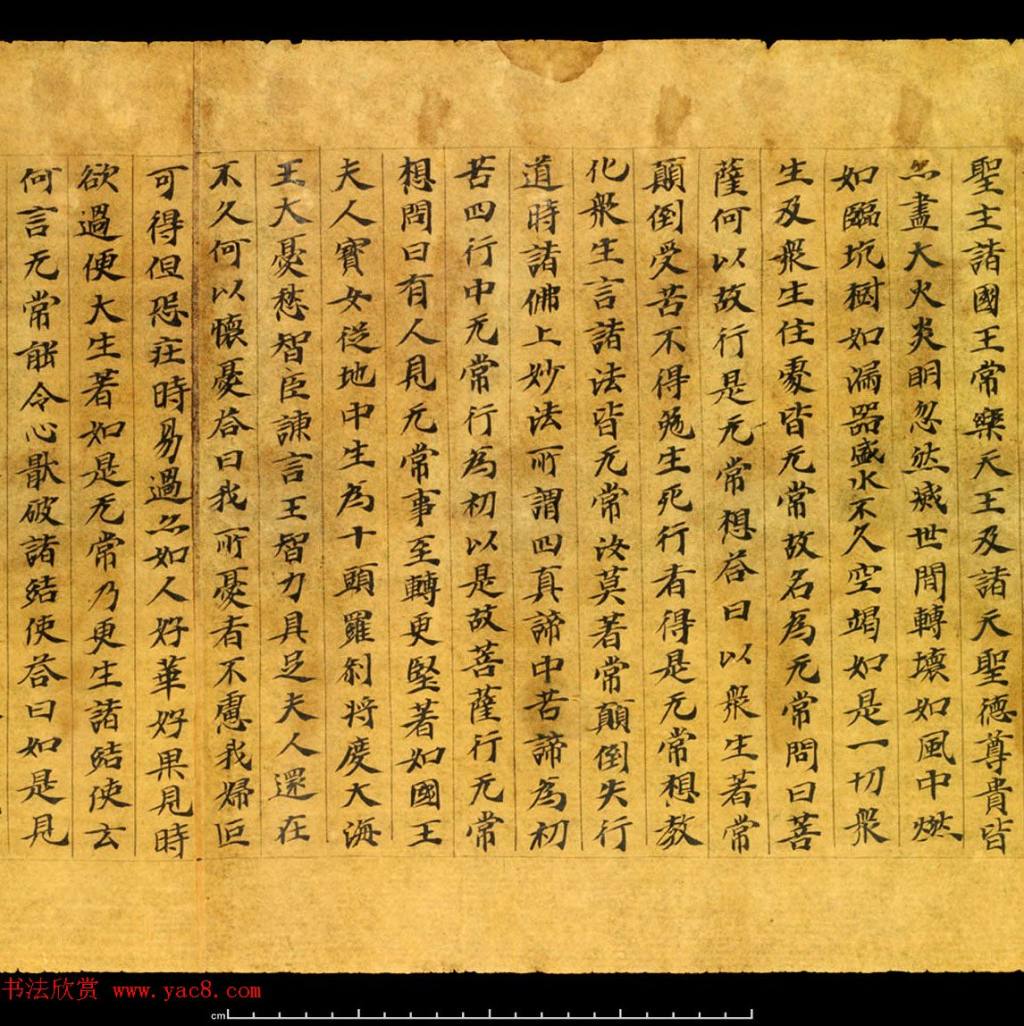 聖主諸國王常樂天王及諸天聖德尊貴皆
亦盡大火炎明忽然滅世間轉壞如風中燃
如臨坑樹如漏器盛水不久空竭如是一切衆
生及衆生住處皆无常故名為无常問曰菩
薩何以故行是无常想荅曰以衆生著常
顛倒受苦不得免生死行者得是无常想教
化衆生言諸法皆无常汝莫著常顛倒失行
道時諸佛上妙法所謂四真諦中苦諦為初
苦四行中无常行為初以是故菩薩行无常
想問曰有人見无常事至轉更堅著如國王
夫人寶女從地中生為十頭羅刹將度大海
王大憂愁智臣諫言王智力具足夫人還在
不久何以懷憂荅曰我所憂者不慮我婦叵
可得但恐在時易過亦如人好華好果見時
欲過便大生著如是无常乃更生諸結使云
何言无常能令心猒破諸結使荅曰如是見
书法欣赏 www.yac8.com
cm